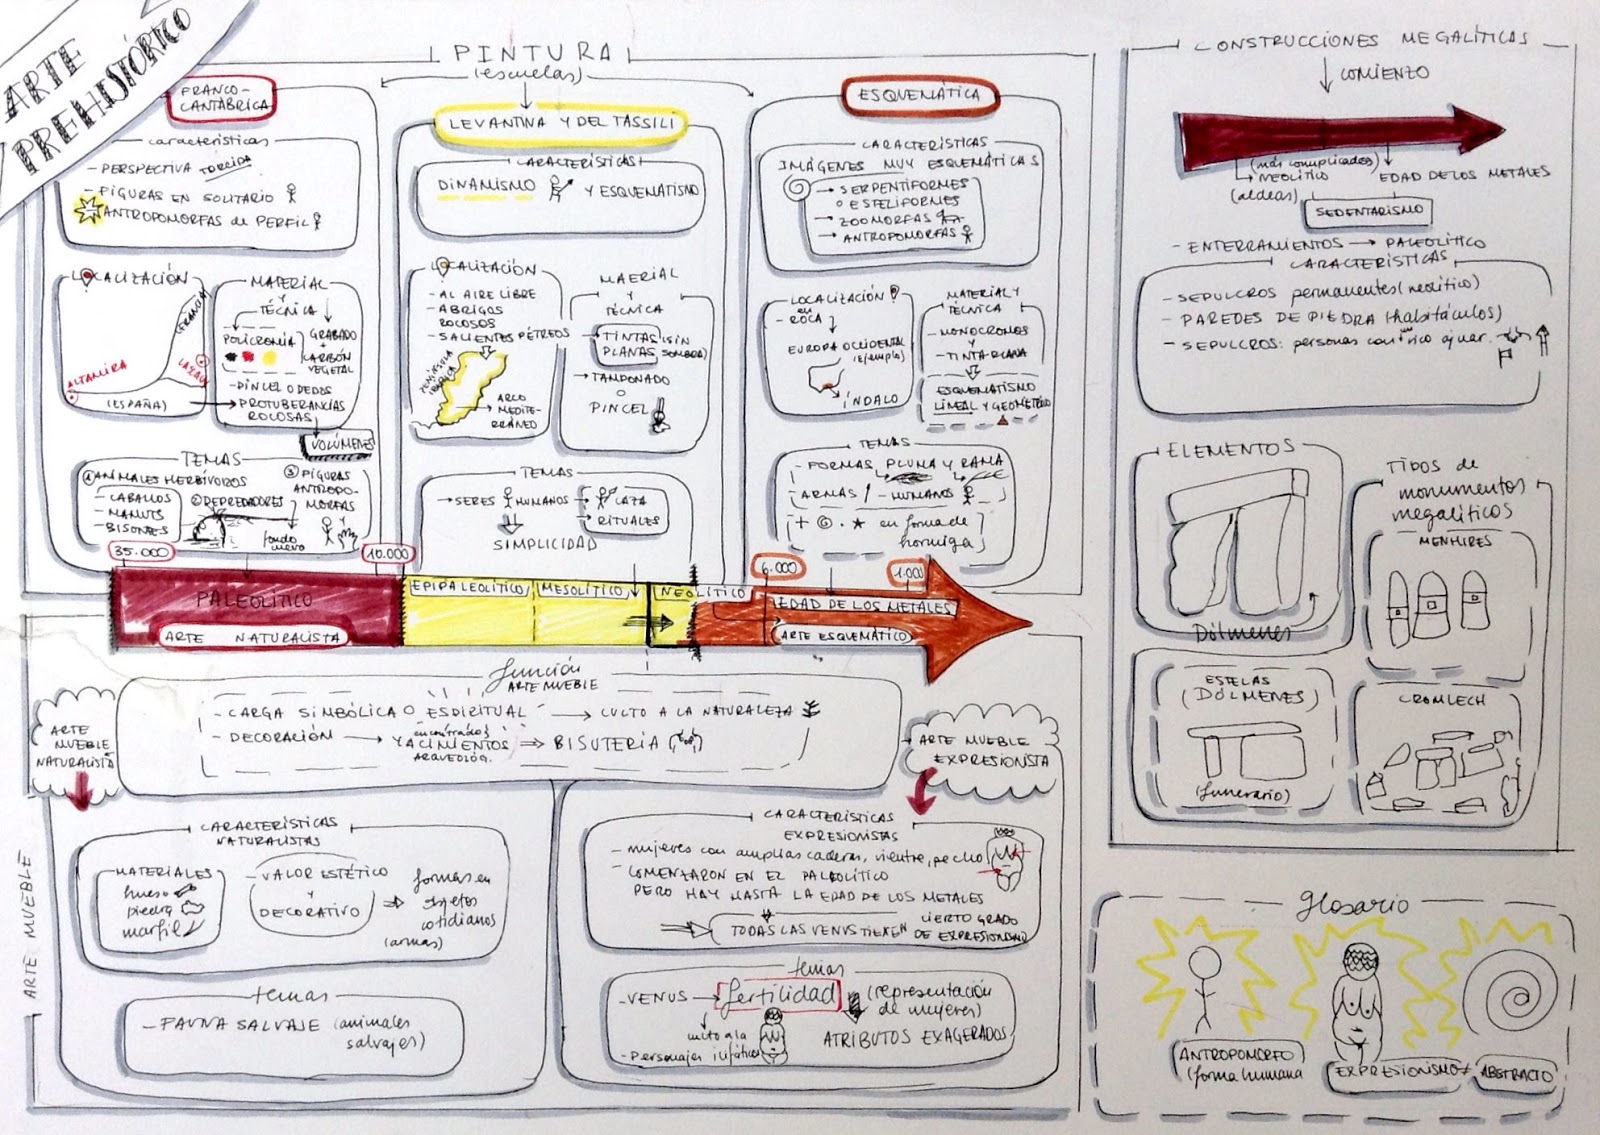 ARTE
PREHISTÓRICO
PINTURA
(escuelas)
FRANCO-
CANTÁBRICA
características
- PERSPECTIVA TORCIDA
- FIGURAS EN SOLITARIO
ANTROPOMORFAS de PERFIL
LOCALIZACIÓN
FRANCIA
ALTAMIRA
(ESPAÑA)
MATERIAL
Y
TÉCNICA
POLICROMÍA
GRABADO
+
CARBÓN
VEGETAL
- PINCEL O DEDOS
PROTUBERANCIAS
ROCOSAS
VOLÚMENES
TEMAS
① ANIMALES HERBÍVOROS
- CABALLOS
- MAMUTS
- BISONTES
② DEPREDADORES
fondo
cueva
③ FIGURAS
ANTROPO-
MORFAS
Y
LEVANTINA Y DEL TASSILI
CARACTERÍSTICAS
DINAMISMO Y ESQUEMATISMO
LOCALIZACIÓN
- AL AIRE LIBRE
- ABRIGOS
ROCOSOS
- SALIENTES PÉTREOS
PENÍNSULA
IBÉRICA
ARCO
MEDITE-
RRÁNEO
MAERIAL
Y
TÉCNICA
TINTAS (SIN
PLANAS SOMBRA)
TAMPONADO
O
PINCEL
TEMAS
SERES HUMANOS
CAZA
RITUALES
SIMPLICIDAD
ESQUEMÁTICA
CARACTERÍSTICAS
IMÁGENES MUY ESQUEMÁTICAS
SERPENTIFORMES
O ESTELIFORMES
ZOOMORFAS
ANTROPOMORFAS
LOCALIZACIÓN
en
- ROCA
EUROPA OCCIDENTAL
(ejemplo)
ÍNDALO
MATERIAL Y
TÉCNICA
- MONOCROMOS
Y
- TINTA PLANA
ESQUEMATISMO
LINEAL Y GEOMÉTRICO
TEMAS
- FORMAS PLUMA Y RAMA
ARMAS - HUMANOS
en forma de
hormiga
35.000
10.000
6.000
1.000
PALEOLÍTICO
ARTE NATURALISTA
EPIPALEOLÍTICO
MESOLÍTICO
NEOLÍTICO
EDAD DE LOS METALES
ARTE ESQUEMÁTICO
función
ARTE MUEBLE
- CARGA SIMBÓLICA O ESPIRITUAL → CULTO A LA NATURALEZA
- DECORACIÓN → encontrados
YACIMIENTOS ⇒ BISUTERÍA
ARQUEOLÓG.
ARTE
MUEBLE
NATURALISTA
ARTE MUEBLE
EXPRESIONISTA
ARTE MUEBLE
CARACTERÍSTICAS
NATURALISTAS
MATERIALES
hueso
piedra
marfil
- VALOR ESTÉTICO
Y
DECORATIVO
formas en
objetos
cotidianos
(armas)
temas
- FAUNA SALVAJE (animales
salvajes)
CARACTERÍSTICAS
EXPRESIONISTAS
- mujeres con amplias caderas, vientre, pecho
- COMENZARON EN EL PALEOLÍTICO
PERO HAY HASTA LA EDAD DE LOS METALES
TODAS LAS VENUS TIENEN CIERTO GRADO
DE EXPRESIONISMO
temas
- VENUS → fertilidad (representación
de mujeres)
culto a la
ATRIBUTOS EXAGERADOS
- Personajes
CONSTRUCCIONES MEGALÍTICAS
COMIENZO
(más complicados)
NEOLÍTICO
(aldeas)
EDAD DE LOS METALES
SEDENTARISMO
- ENTERRAMIENTOS → PALEOLÍTICO
CARACTERÍSTICAS
- SEPULCROS permanentes (neolítico)
- PAREDES DE PIEDRA (habitáculos)
- SEPULCROS: personas con rico ajuar.
ELEMENTOS
Dólmenes
TIPOS de
monumentos
megalíticos
MENHIRES
ESTELAS
(DÓLMENES)
(funerario)
CROMLECH
glosario
ANTROPOMORFO
(forma humana
EXPRESIONISMO ≠ ABSTRACTO